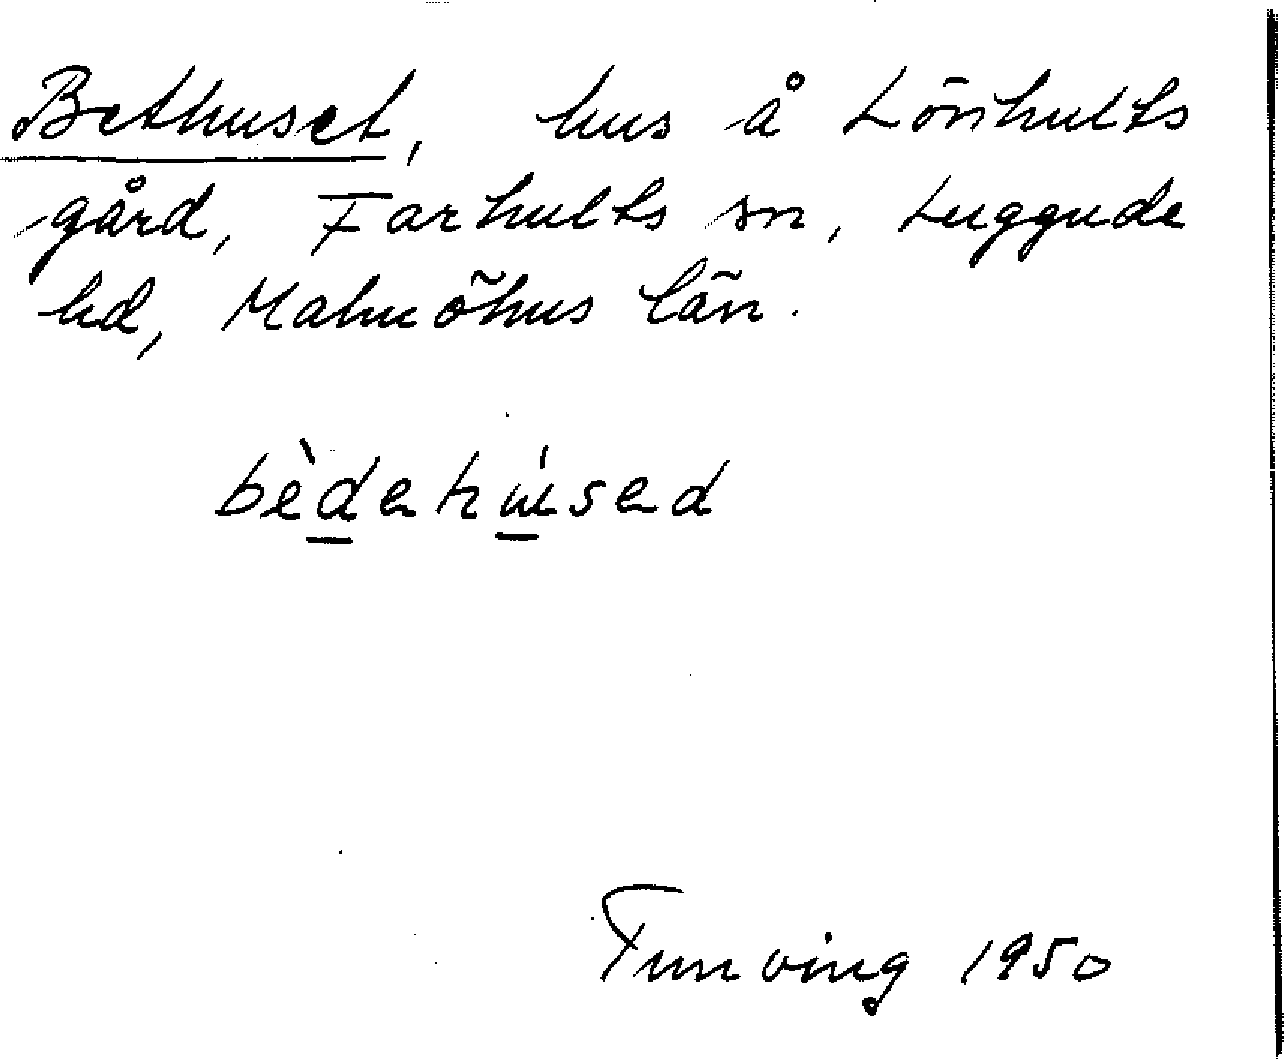 Bethuset, hus å Lönhults
gård, Farhults sn, Luggude
hd, Malmöhus län.
bèdehúsed
Tunving 1950